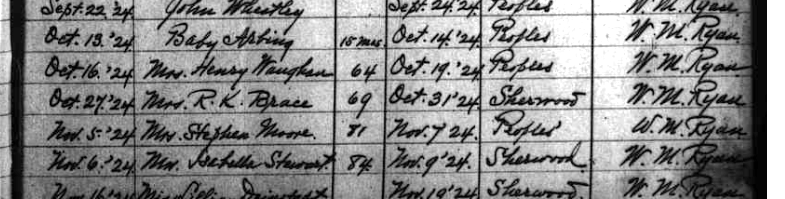 Sept. 22, '24 John Wheatley Sept. 24. 24 Peoples W. M. Ryan
Oct. 13. '24 Baby 15 mos. Oct. 14. '24 Peoples W. M. Ryan
Oct. 16. '24 Mrs. Henry Vaughan 64 Oct. 19. '24 Peoples W. M. Ryan
Oct. 27. '24 Mrs. R. K. Brace 69 Oct. 31 '24 Sherwood W. M. Ryan
Nov. 5. '24 Mrs. Stephen Moore. 81 Nov. 7 '24. Peoples W. M. Ryan
Nov. 6. '24 Mrs. Isabella Stewart. 84. Nov. 9 '24. Sherwood. W. M. Ryan
Nov. 16. '24 Nov. 19 '24 Sherwood. W. M. Ryan